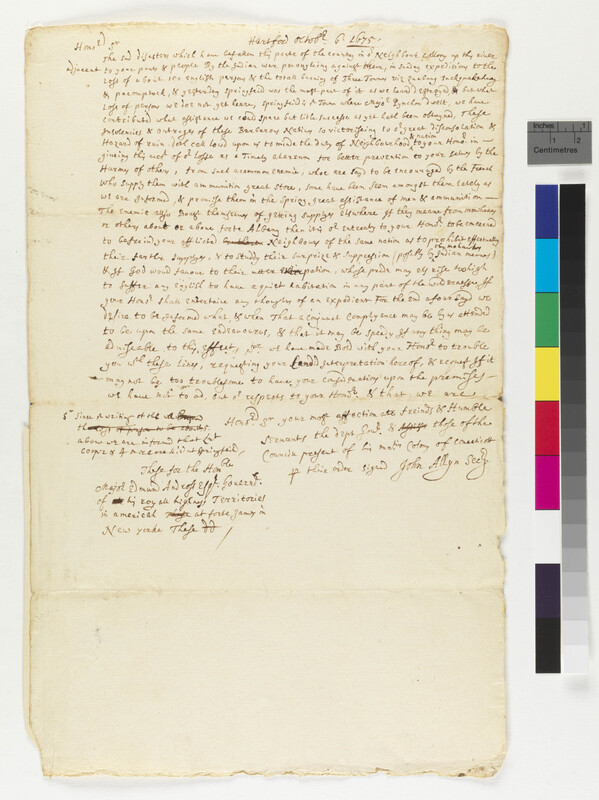 Hartford Octobr 6: 1675
Honrd Sr
The sad disasters which have befallen this parte of the country in Neighbour Collony up this river
adjacent to your parts & people By the Indian war, persuing against them, in sundry expeditions to the
Loss of about English persons & the totall burning of Three Townes viz
& & yesterday Springfield was the most part of it as we heard destroyed & but what
Loss of persons we doe not yet heare, Springfield is a Towne where Majr Pynchon dwelt, we have
contributed what assistance we could spare but litle success as yet hath been obteyned, These
Insolencies & outrages of these Barbarous Natives so victorissing to so great discomsolation &
Hazard of ruin doth call loud upon us to minde the duty of Neighbourhood & nation to your Honr in
giveing this acct of or losses as a Timely alarum for better prevention to your selves by the
Harmes of others, from such a common enemie, what are sayd to be encouraged by the French
Who supply them with ammunition great store, some have been seen amongst them lately as
we are informed, & promise them in the Spring great assistance of men & ammunition
The enemie also Boast themselves of getting supplyes elsewhere If they meane from
or others about or above forte Albany then it is or intreaty to your Honr to be concerned
to befreind your afflicted Neighbours of the same nation as to prohibit effectually
their further Supplyes, & to study their surprize & suppression (possibly by Indian meanes)
& if God would favour to their utter, whose pride may els rise to high
to suffer any english to have a quiet habitation in any part of the wilderness If
your Honr shall entertaine any thoughts of an expedient for the end aforesayd we
desire to be informed what, & when That a conjunct Complyance may be by us attended
to be upon the same endeavours, & that it may be speedy if any thing may be
adviseable to this effect, Sr we have made Bold with your Honr to trouble
you wth these Lines, requesting your Candid Interpretation hereof, & request if it
may not be too troublesome to have your consideration upon the premises
we have not to ad, but or respects to your Honr & that we are
Honrd Sr your most affectionate freinds & Humble
Servants the dept Govr & those of the
Councill present of his maties Colony of Conecticot
p their order signed John Allyn Secry
Sr Since ye writing of the
above we are informed that Lt
Cooper & 4 more are kild at Springfeild,
These for the Honble
Major Edmund Andross Esqr Governr
of his royall highness Territories
in america at forte James in
New yorke These dd
Inches
Centimetres
1
2